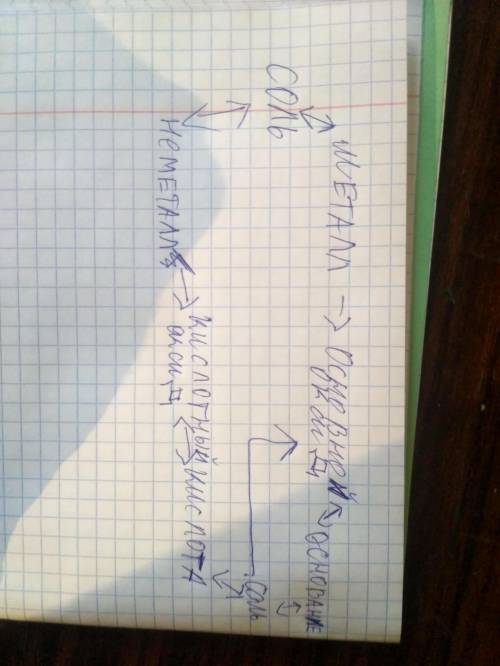 Металл → Основной ↔ основание
оксид
Соль
Соль
Неметалл → кислотный ↔ кислота
оксид